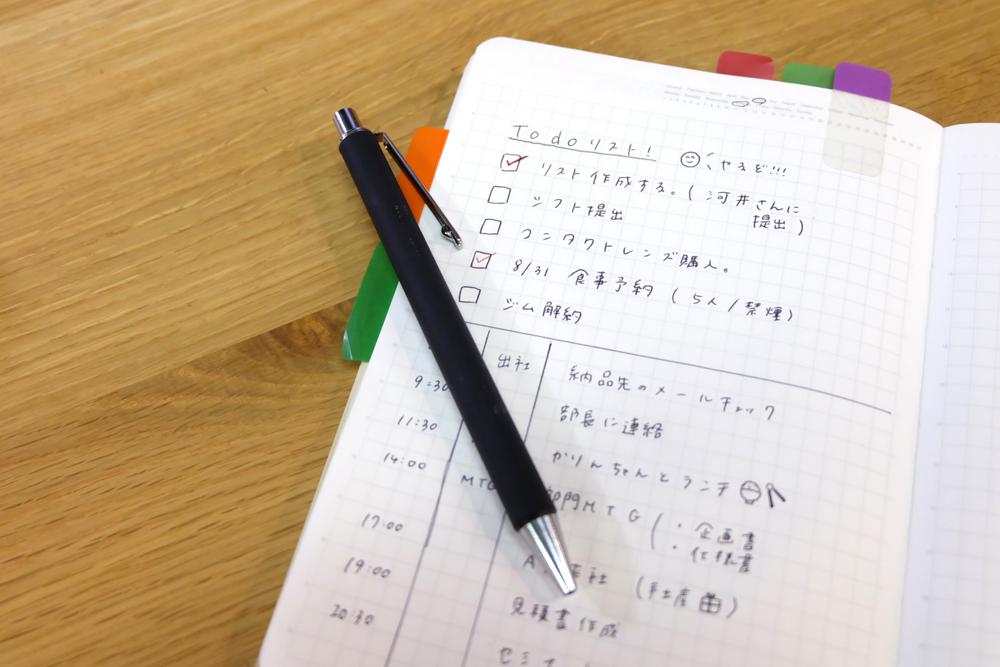 Todoリスト! やるぞ!!!
リスト作成する。(河井さんに
提出)
シフト提出
コンタクトレンズ購入。
8/31 食事予約 (5人/禁煙)
ジム解約
出社 納品先のメールチェック
9:30
部長に連絡
11:30
かりんちゃんとランチ
14:00
MTG 部門MTG (・企画書
・仕様書
17:00
(手土産)
19:00
見積書作成
20:30